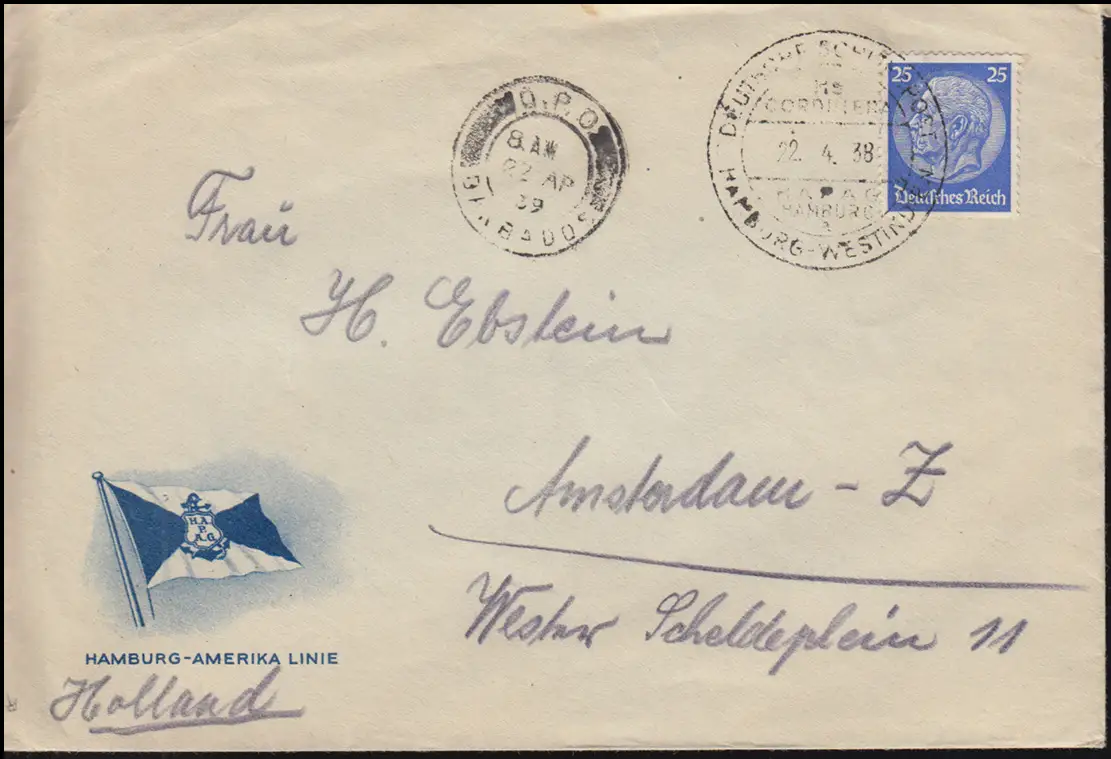 G.P.O
8 AM
22 AP
39
BARBADOS
DEUTSCHE SCHIFFSPOST
MS
CORDILLERA
22. 4. 38
HAPAG
HAMBURG
a
HAMBURG-WESTINDIEN
25 25
Deutsches Reich
Frau
H. Ebstein
Amsterdam - Z
Wester Scheldeplein 11
H.A.
P.
A.G.
HAMBURG-AMERIKA LINIE
Holland